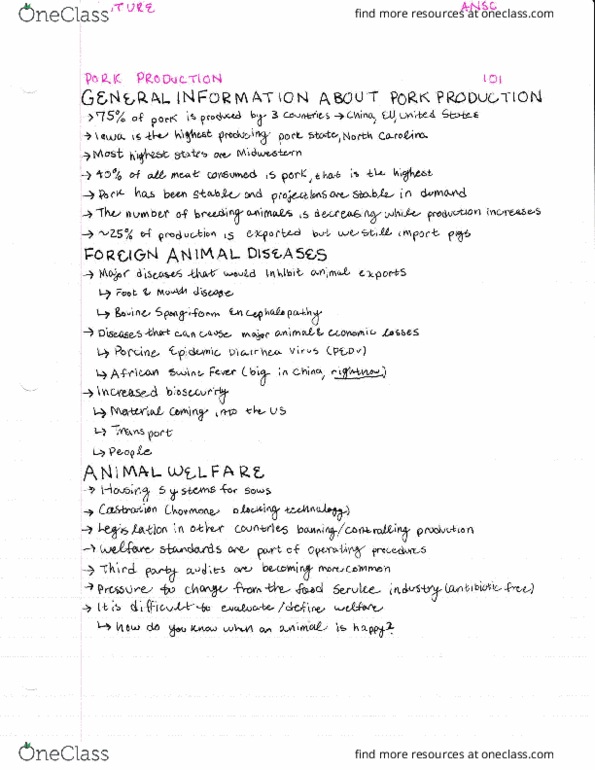 OneClass
TURE
ANSC
find more resources at oneclass.com
PORK PRODUCTION
101
GENERAL INFORMATION ABOUT PORK PRODUCTION
→ 75% of pork is produced by 3 countries → China, EU, United States
→ Iowa is the highest producing pork state, North Carolina
→ Most highest states are Midwestern
→ 40% of all meat consumed is pork, that is the highest
→ Pork has been stable and projections are stable in demand
→ The number of breeding animals is decreasing while production increases
→ ~25% of production is exported but we still import pigs
FOREIGN ANIMAL DISEASES
→ Major diseases that would inhibit animal exports
↳ Foot & Mouth disease
↳ Bovine Spongiform Encephalopathy
→ Diseases that can cause major animal & economic losses
↳ Porcine Epidemic Diarrhea Virus (PEDv)
↳ African Swine Fever (big in China, right now)
→ Increased biosecurity
↳ Material coming into the US
↳ Transport
↳ People
ANIMAL WELFARE
→ Housing systems for sows
→ Castration (hormone blocking technology)
→ Legislation in other countries banning/controlling production
→ Welfare standards are part of operating procedures
→ Third party audits are becoming more common
→ Pressure to change from the food service industry (antibiotic free)
→ It is difficult to evaluate/define welfare
↳ How do you know when an animal is happy?
OneClass
find more resources at oneclass.com